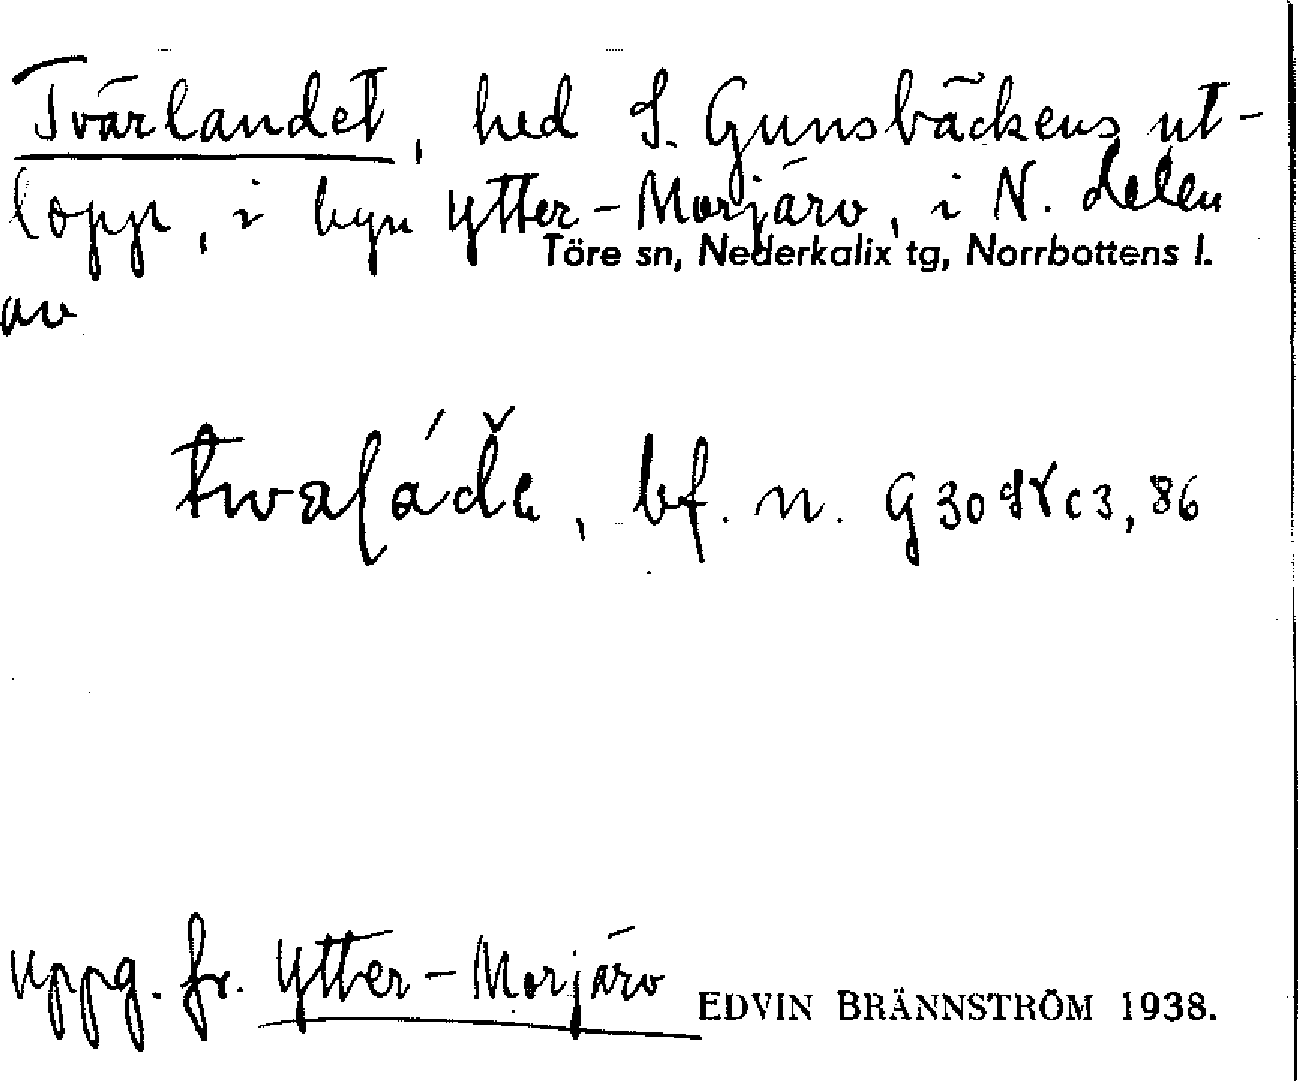 Tvärlandet, hed S. Gunsbäckens ut-
lopp, i byn Ytter-Morjärv, i N. delen
av Töre sn, Nederkalix tg, Norrbottens l.
bf. n. G30
uppg. fr. Ytter-Morjärv EDVIN BRÄNNSTRÖM 1938.